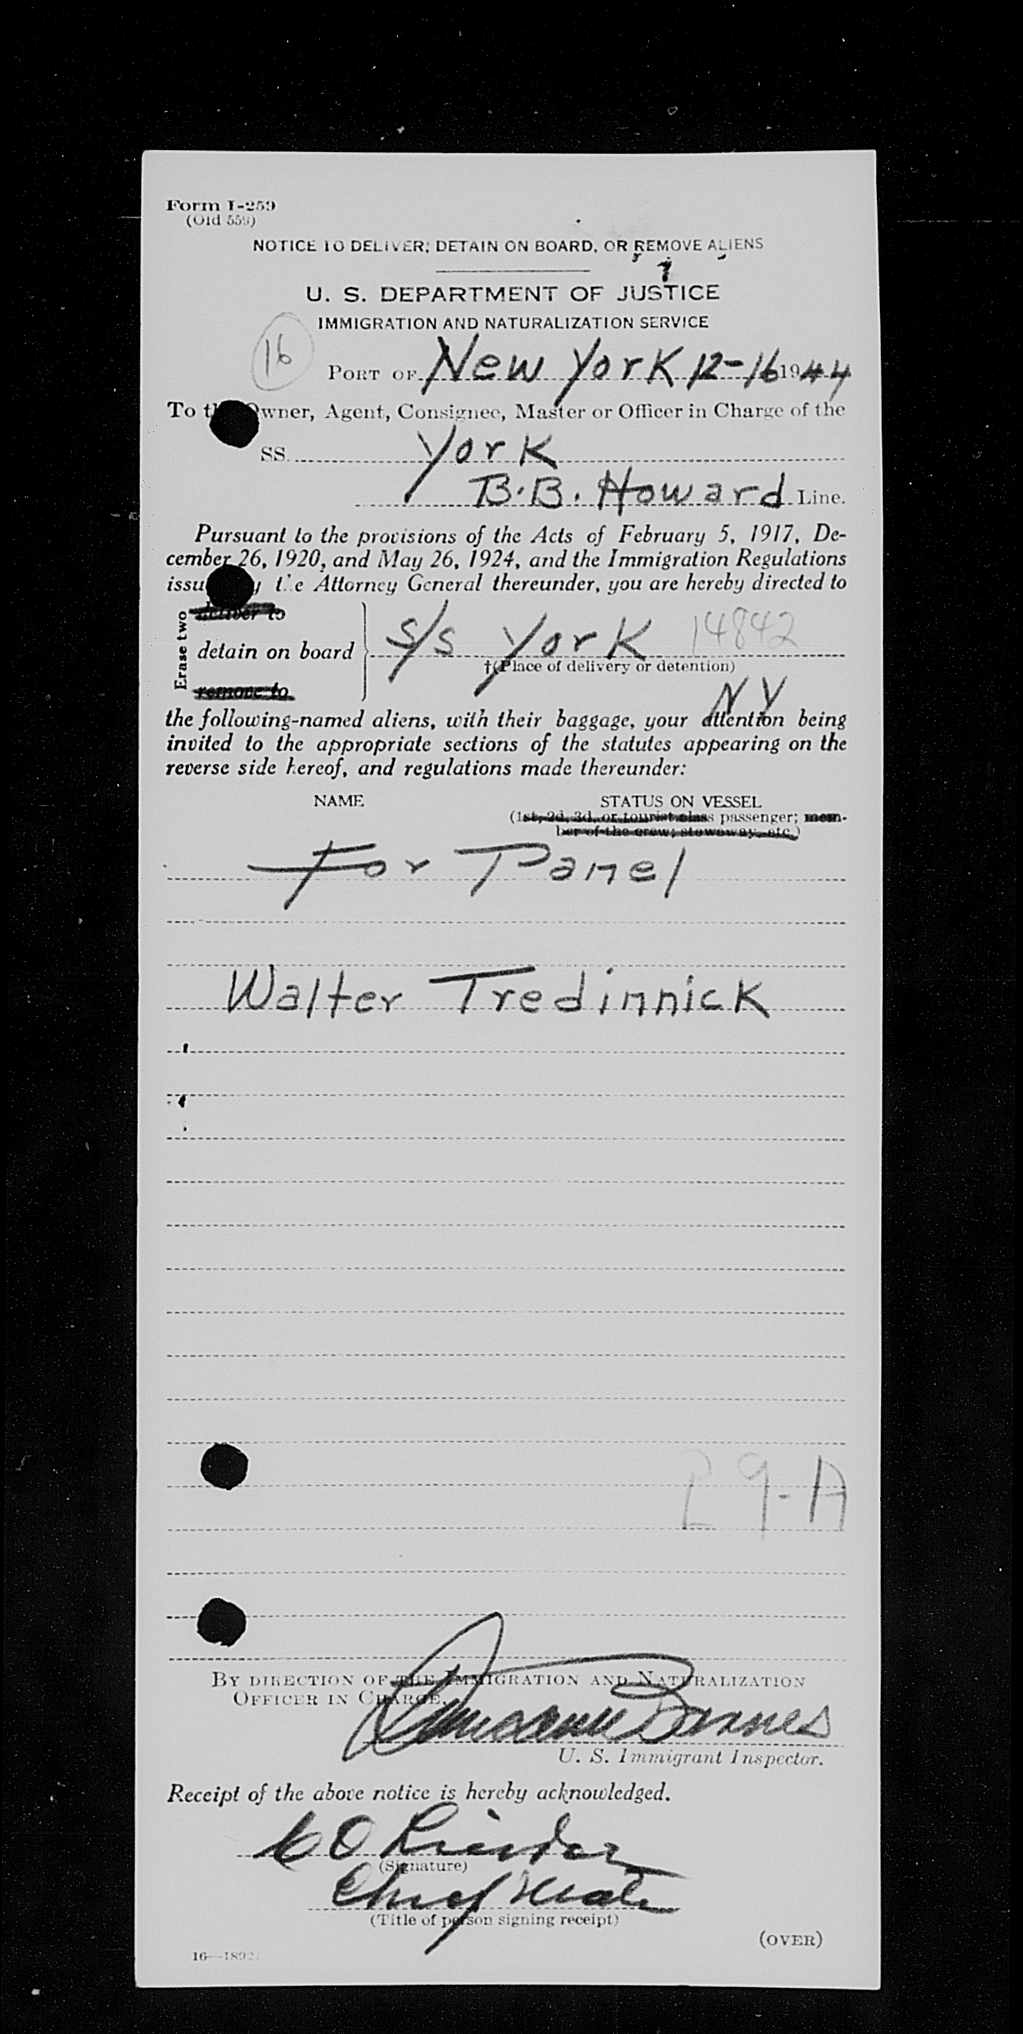 Form I-259
(Old 559)
NOTICE TO DELIVER, DETAIN ON BOARD, OR REMOVE ALIENS
U. S. DEPARTMENT OF JUSTICE
IMMIGRATION AND NATURALIZATION SERVICE
16
PORT OF New York 12-16 1944
To the Owner, Agent, Consignee, Master or Officer in Charge of the
SS. York
B.B. Howard Line.
Pursuant to the provisions of the Acts of February 5, 1917, De-
cember 26, 1920, and May 26, 1924, and the Immigration Regulations
issued by the Attorney General thereunder, you are hereby directed to
Erase two
deliver to
detain on board
remove to
S/S York 14842
†(Place of delivery or detention)
NY
the following-named aliens, with their baggage, your attention being
invited to the appropriate sections of the statutes appearing on the
reverse side hereof, and regulations made thereunder:
NAME STATUS ON VESSEL
(1st, 2d, 3d, or tourist class passenger; mem-
ber of the crew; stowaway, etc.)
For Panel
Walter Tredinnick
9-A
BY DIRECTION OF THE IMMIGRATION AND NATURALIZATION
OFFICER IN CHARGE.
Barnes
U. S. Immigrant Inspector.
Receipt of the above notice is hereby acknowledged.
(Signature)
Chief Mate
(Title of person signing receipt)
(OVER)